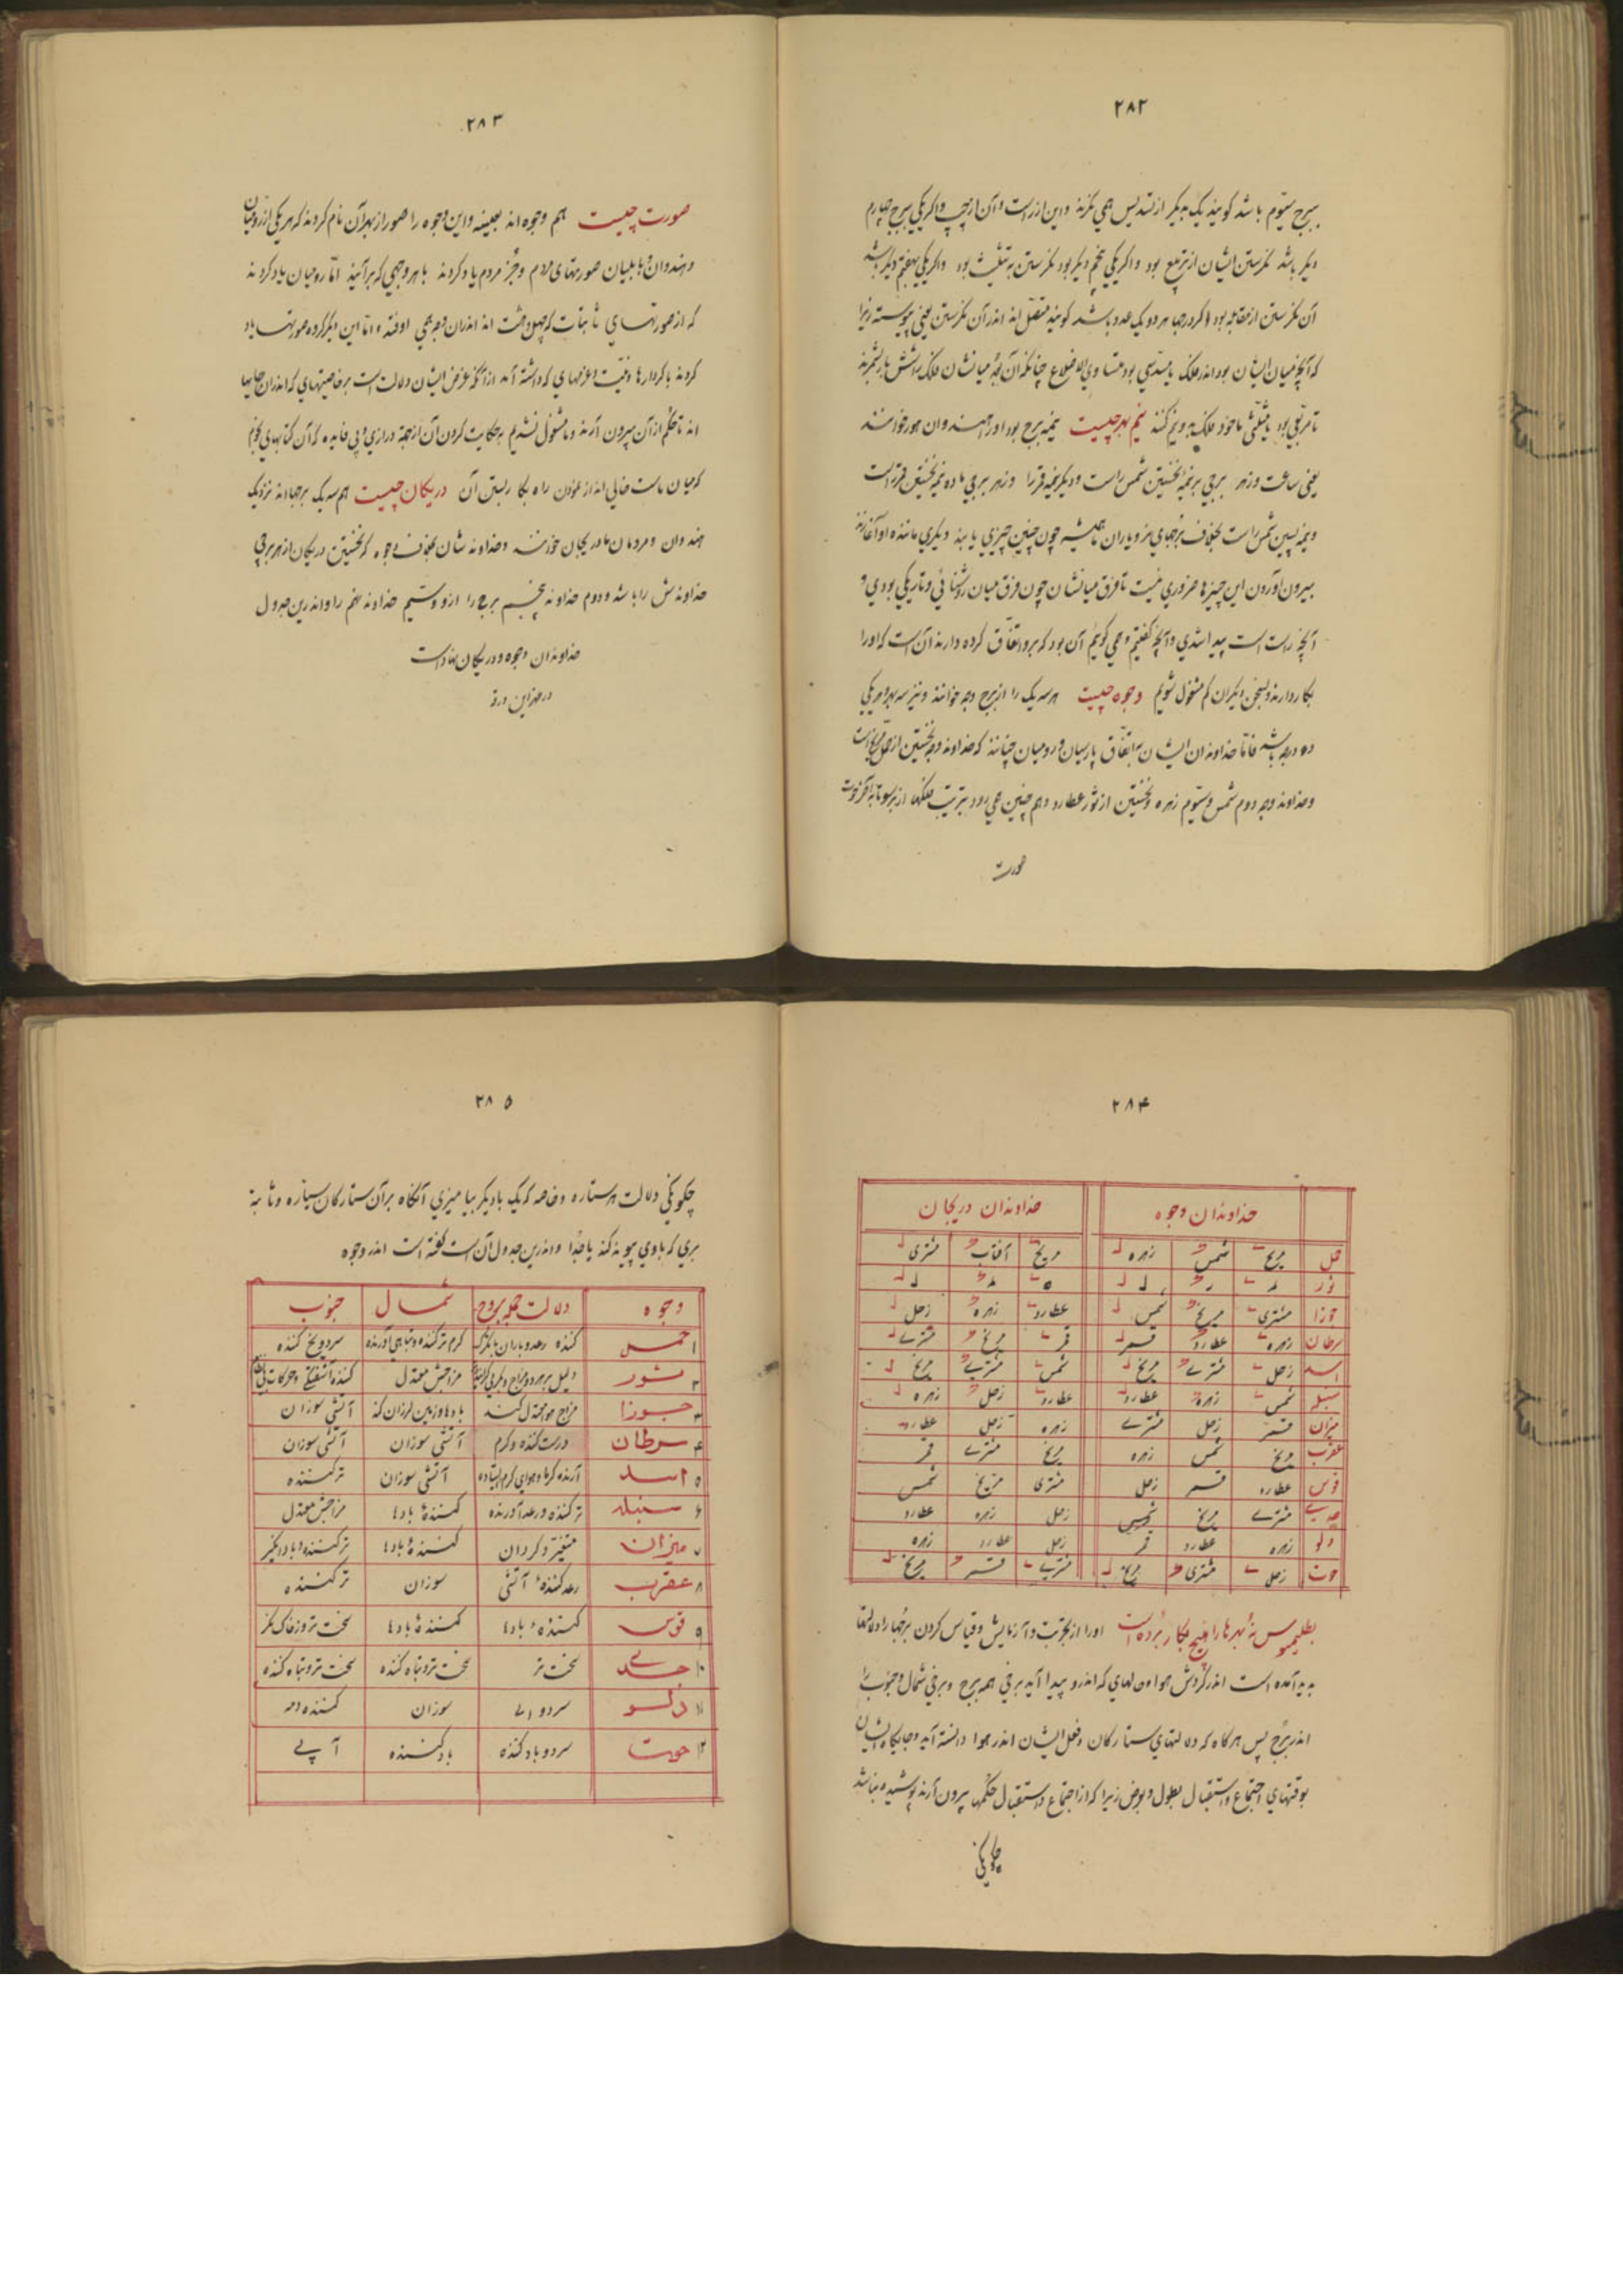 ۲۸۲
ببرج سیّوم باشد کویند یک بدیکر از تسدیس همی نکرند واین از راست وآن از چپ واکر یکی ببرج چهارم
دیکر باشد نکرستن ایشان از تربیع بود واکر یکی پنجم دیکر بود نکرستن به تثلیث بود واکر یکی بهفتم دیکر باشد
آن نکرستن از مقابله بود واکر درجها هر دو یک عدد باشد کویند متصّل اند اندر آن نکرستن یعنی پیوسته زیرا
که آنچه میان ایشان بود اندر فلک یا مسدّسی بود متساوی الاضلاع چنانکه آن میانشان فلک راشش بار بشمرند
یا مربّعی بود یا مثلّثی یا خود فلک بدو نیم کند نیم بهر چیست نیمه برج بود اورا هندوان هور خوانند
یعنی ساعت ونر برجی بر نیمهٔ نخستین شمس راست ودیکر نیمه قمر را وز هر برجی ماده نیمهٔ نخستین قمر راست
ونیمهٔ پسین شمس راست بخلاف برجهای نر ویاران ما همیشه چون چنین چیزی یابند دیکری مانندهٔ او آغازند
بیرون آوردن این چیزها ضروری نیست تا فرق میانشان چون فرق میان روشنائی وتاریکی بودی و
آنچه راست است پیدا شدی وآنچه کفتیم وهمی کوییم آن بود که برو اتّفاق کرده دارند آن است که اورا
بکار دارند وبسخن دیکران کم مشغول شویم وجوه چیست هر سه یک را از برج وجه خوانند ونیز سه بهر هر یکی
ده درجه باشد فامّا خداوندان ایشان به اتّفاق پارسیان ورومیان چنانند که خداوند وجه نخستین از حمل مرّیخ است
وخداوند وجه دوم شمس وسیّوم زهره ونخستین از ثور عطارد وهم چنین همی رود بترتیب فلکها از بر سو تا به آخر حوت
صورت
۲۸۳
صورت چیست هم وجوه اند بعینه واین وجوه را صور از بهر آن نام کردند که هر یکی از رومیان
وهندوان وبابلیان صورتهای مردم وجز مردم یاد کردند با هر وجهی که برآیند امّا رومیان یاد کردند
که از صورتهای ثابتات که چهل وهشت اند اندران وجه همی اوفتد وامّا این دیکر کروه صورتها یاد
کردند با کردارها ونیّت وعزمهای که داشته آمد از آنکه غرض ایشان دلالت است بر خاصیتهای که اندران جایها
اند تا حکم از آن بیرون آرند وما مشغول نشدیم به حکایت کردن آن از جهة درازی وبی فایده که آن کتابهای نجوم
که میان ماست خالی اند از نمودن راه بکار بستن آن دریکان چیست هم سه یک برجها اند نزدیک
هندوان ومردمان ما دریجان خوانند وخداوندشان بخلاف وجوه که نخستین دریکان از هر برجی
خداوندش را باشد ودوم خداوند پنجم برج را ازو وسیم خداوند نهم را واندرین جدول
خداوندان وجوه ودریکان نهاده است
در ظهر این ورق
۲۸۴
خداوندان وجوه خداوندان دریجان
حمل مریخ شمس زهره مریخ آفتاب مشتری
ثور
جوزا مشتری مریخ شمس عطارد زهره زحل
سرطان زهره عطارد قمر قمر مریخ مشتری
اسد زحل مشتری مریخ شمس مشتری مریخ
سنبله شمس زهره عطارد عطارد زحل زهره
میزان قمر زحل مشتری زهره زحل عطارد
عقرب مریخ شمس زهره مریخ مشتری قمر
قوس عطارد قمر زحل مشتری مریخ شمس
جدی مشتری مریخ شمس زحل زهره عطارد
دلو زهره عطارد قمر زحل عطارد زهره
حوت زحل مشتری مریخ مشتری قمر مریخ
بطلیموس نه بهرها را هیچ بکار برده است اورا از تجربت وآزمایش وقیاس کردن برجها را دلالتها
پدید آمده است اندر کردش هوا ومهای که اندرو پیدا آید برفی همه برج وبرفی شمال وجنوب را
اندر برج پس هرکاه که دلالتهای ستارکان وفعل ایشان اندر هوا دانسته آید وجایکاه ایشان
بوقتهای اجتماع واستقبال بطول وبعرض زیرا که از اجتماع واستقبال حکمها بیرون آرند پوشیده نباشد
چکونکی
۲۸۵
چکونکی دلالت هر ستاره وخاصه که یک با دیکر بیامیزی آنکاه بر آن ستارکان سیّاره وثابته
بری که با وی پیوند کند یا جدا واندرین جدول آن است که کفته است اندر وجوه
وجوه دلالت جمله بروج شمال جنوب
۱ حمل کننده رعد وباران با تکرک کرم ترکننده وتباهی آورنده سرد ویخ کننده
۲ ثور دلیل بر هر دو مزاج وبکرمی کراینده مزاجش معتدل کننده آشفتکی وحرکات بی نظام
۳ جوزا مزاج هوا معتدل کند بادها وزمین لرزان کند آتشی سوزان
۴ سرطان درست کننده وکرم آتشی سوزان آتشی سوزان
۵ اسد آرنده کرما وهوای کرم ایستاده آتشی سوزان ترکننده
۶ سنبله ترکننده ورعد آورنده کننده بادها مزاجش معتدل
۷ میزان متغیّر وکردان کننده بادها ترکننده وباد انکیز
۸ عقرب رعد کننده آتشی سوزان ترکننده
۹ قوس کننده بادها کننده بادها سخت تر
۱۰ جدی سخت تر سخت تر وتباه کننده سخت تر وتباه کننده
۱۱ دلو سرد وآبی سوزان کننده دمه
۱۲ حوت سرد وباد کننده باد کننده آبی